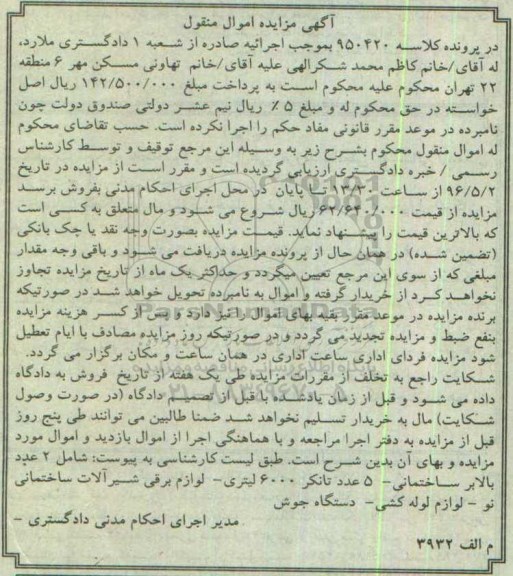 آگهی مزایده اموال منقول
در پرونده کلاسه ۹۵۰۴۲۰ بموجب اجرائیه صادره از شعبه ۱ دادگستری ملارد،
له آقای/خانم کاظم محمد شکرالهی علیه آقای/خانم تهاونی مسکن مهر ۶ منطقه
۲۲ تهران محکوم علیه محکوم است به پرداخت مبلغ ۱۴۲/۵۰۰/۰۰۰ ریال اصل
خواسته در حق محکوم له و مبلغ ۵ ٪ ریال نیم عشر دولتی صندوق دولت چون
نامبرده در موعد مقرر قانونی مفاد حکم را اجرا نکرده است. حسب تقاضای محکوم
له اموال منقول محکوم بشرح زیر به وسیله این مرجع توقیف و توسط کارشناس
رسمی / خبره دادگستری ارزیابی گردیده است و مقرر است از مزایده در تاریخ
۹۶/۵/۲ از ساعت ۱۳/۳۰ تا پایان در محل اجرای احکام مدنی بفروش برسد
مزایده از قیمت ریال شروع می شود و مال متعلق به کسی است
که بالاترین قیمت را پیشنهاد نماید. قیمت مزایده بصورت وجه نقد یا چک بانکی
(تضمین شده) در همان حال از پرونده مزایده دریافت می شود و باقی وجه مقدار
مبلغی که از سوی این مرجع تعیین میگردد و حداکثر یک ماه از تاریخ مزایده تجاوز
نخواهد کرد از خریدار گرفته و اموال به نامبرده تحویل خواهد شد در صورتیکه
برنده مزایده در موعد مقرر بقیه بهای اموال را نپردازد و پس از کسر هزینه مزایده
بنفع ضبط و مزایده تجدید می گردد و در صورتیکه روز مزایده مصادف با ایام تعطیل
شود مزایده فردای اداری ساعت اداری در همان ساعت و مکان برگزار می گردد.
شکایت راجع به تخلف از مقررات مزایده طی یک هفته از تاریخ فروش به دادگاه
داده می شود و قبل از زمان یادشده با قبل از تصمیم دادگاه (در صورت وصول
شکایت) مال به خریدار تسلیم نخواهد شد ضمنا طالبین می توانند طی پنج روز
قبل از مزایده به دفتر اجرا مراجعه و با هماهنگی اجرا از اموال بازدید و اموال مورد
مزایده و بهای آن بدین شرح است. طبق لیست کارشناسی به پیوست: شامل ۲ عدد
بالابر ساختمانی- ۵ عدد تانکر ۶۰۰۰ لیتری- لوازم برقی شیرآلات ساختمانی
نو - لوازم لوله کشی- دستگاه جوش
مدیر اجرای احکام مدنی دادگستری -
م الف ۳۹۳۲